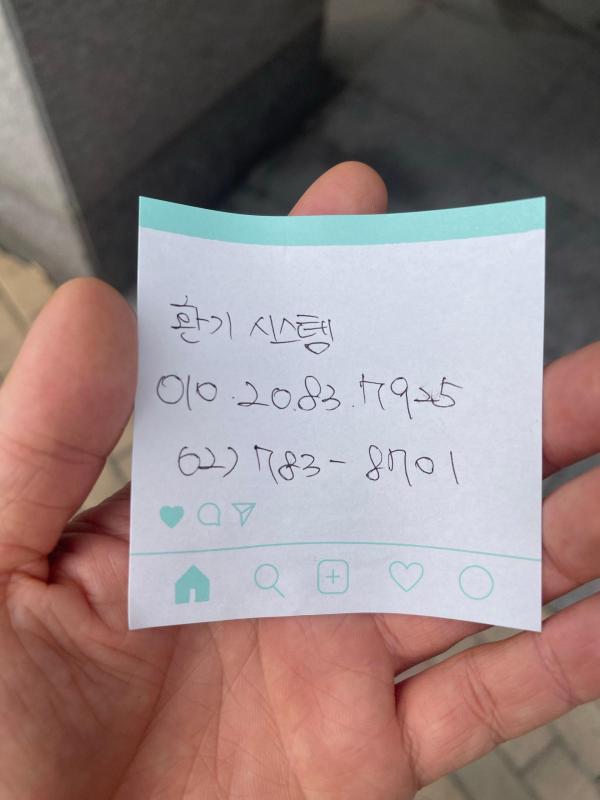 환기 시스템
010.2083.7925
02) 783-8701